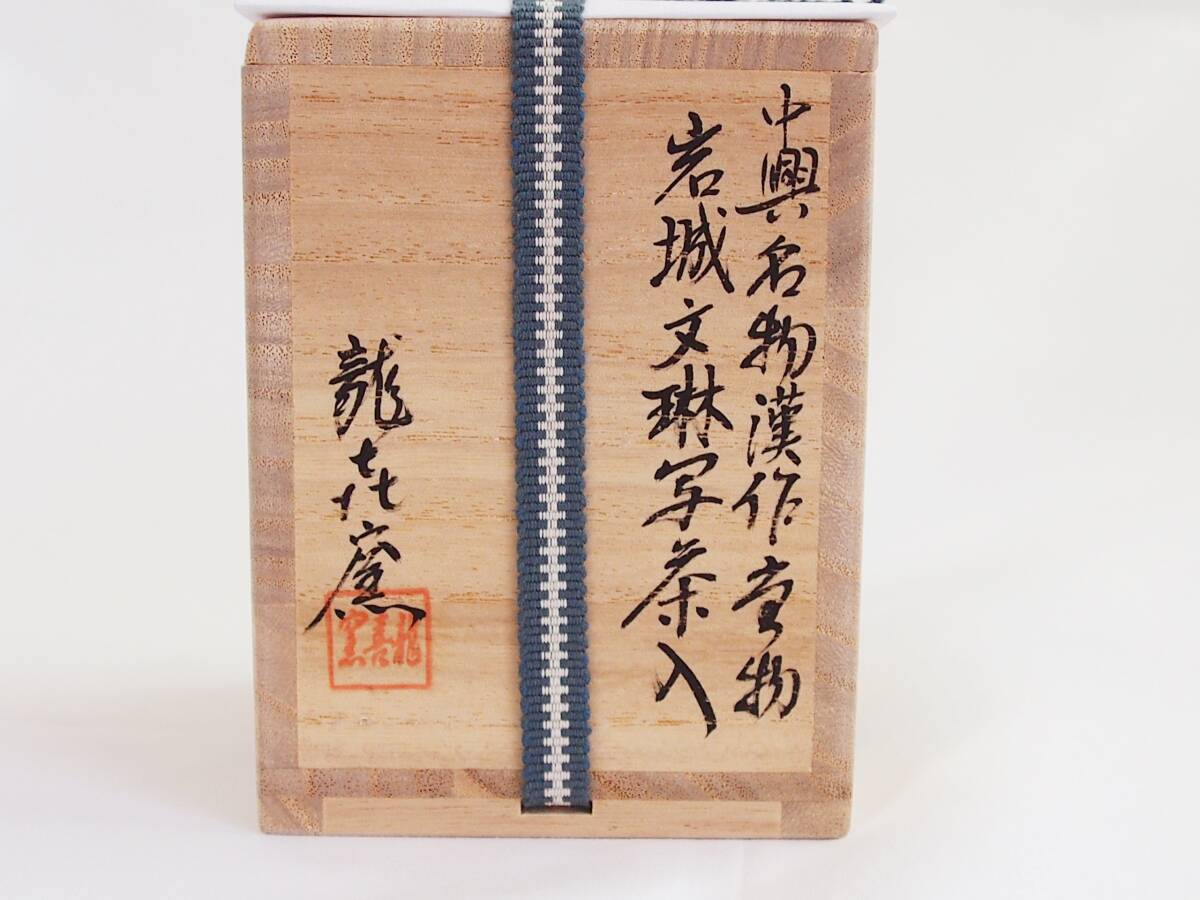 中興名物漢作唐物
岩城文琳写茶入
龍㐂窯
龍喜窯